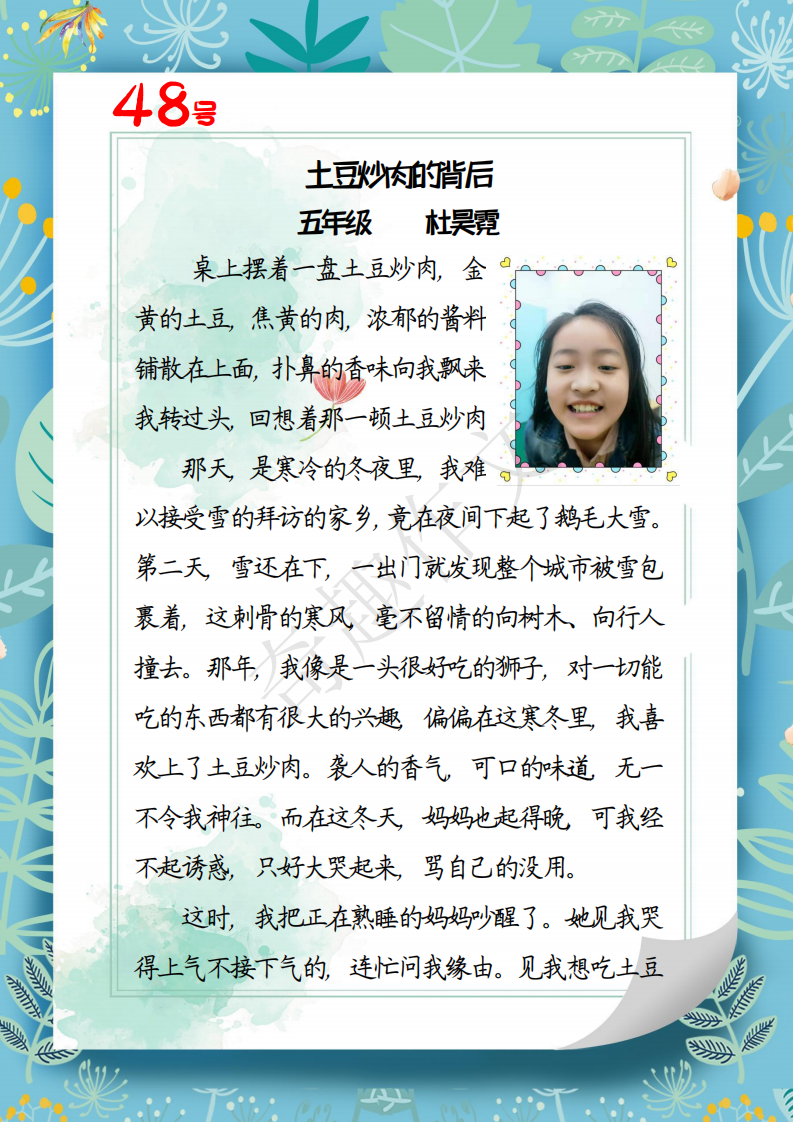 48号
土豆炒肉的背后
五年级 杜昊霓
桌上摆着一盘土豆炒肉，金
黄的土豆，焦黄的肉，浓郁的酱料
铺散在上面，扑鼻的香味向我飘来
我转过头，回想着那一顿土豆炒肉
那天，是寒冷的冬夜里，我难
以接受雪的拜访的家乡，竟在夜间下起了鹅毛大雪。
第二天，雪还在下，一出门就发现整个城市被雪包
裹着，这刺骨的寒风，毫不留情的向树木、向行人
撞去。那年，我像是一头很好吃的狮子，对一切能
吃的东西都有很大的兴趣，偏偏在这寒冬里，我喜
欢上了土豆炒肉。袭人的香气，可口的味道，无一
不令我神往。而在这冬天，妈妈也起得晚，可我经
不起诱惑，只好大哭起来，骂自己的没用。
这时，我把正在熟睡的妈妈吵醒了。她见我哭
得上气不接下气的，连忙问我缘由。见我想吃土豆
奇趣作文